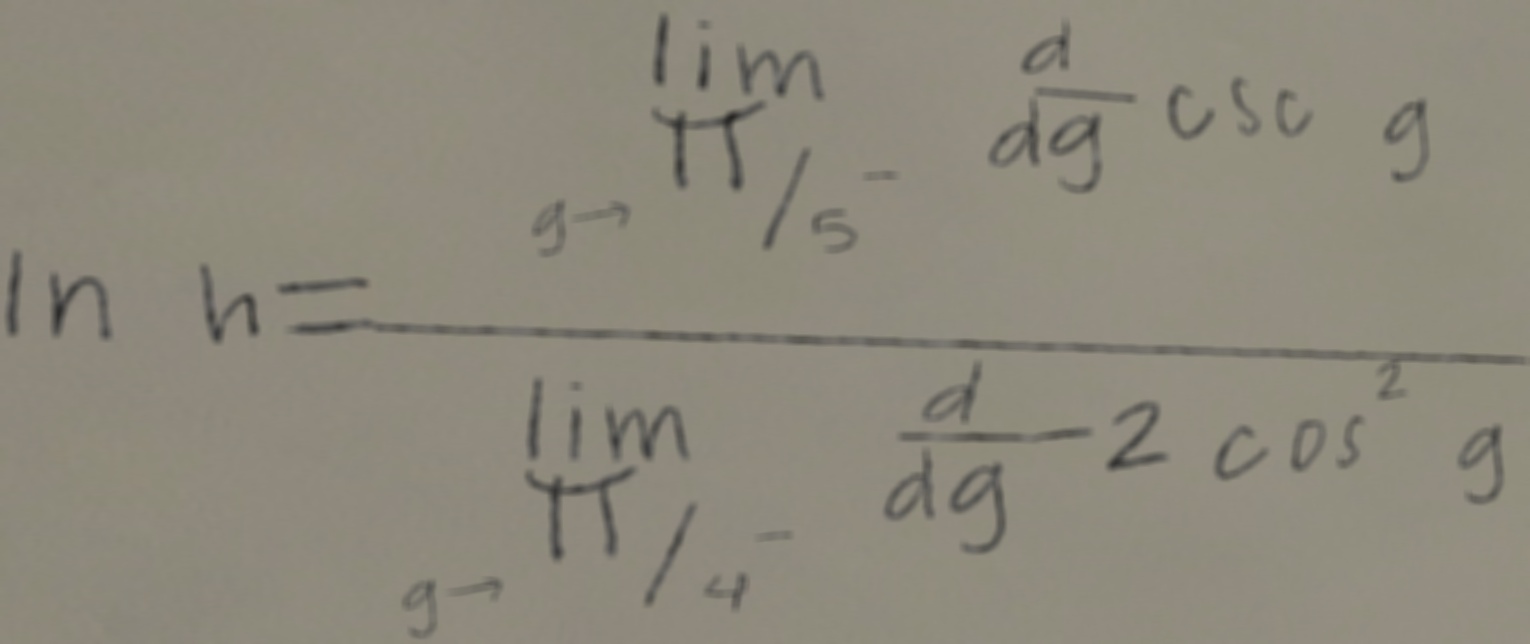 ln h = \frac{\lim_{g \to \pi/5^-} \frac{d}{dg} \csc g}{\lim_{g \to \pi/4^-} \frac{d}{dg} - 2 \cos^2 g}